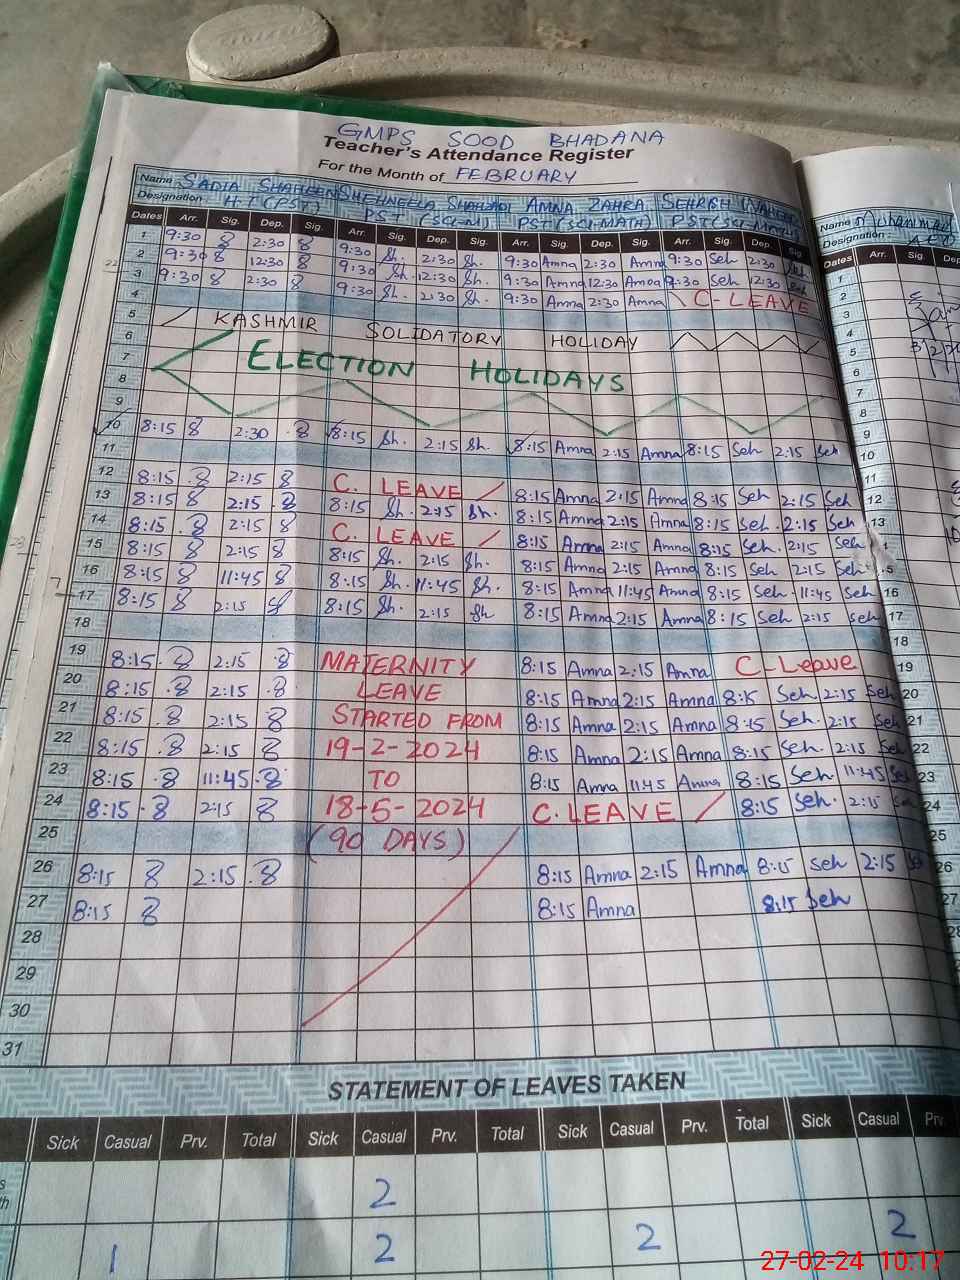 GMPS SOOD BHADANA
Teacher's Attendance Register
For the Month of FEBRUARY
Name SADIA SHAHEEN SHEHNEELA SHAHZADI AMNA ZAHRA SEHRISH WAHEED
Designation HT (PST) PST (SCI-M) PST (SCI-MATH) PST (SCI-MATH)
Dates Arr. Sig. Dep. Sig. Arr. Sig. Dep. Sig. Arr. Sig. Dep. Sig. Arr. Sig. Dep. Sig.
1 9:30 8 2:30 8 9:30 Sh. 2:30 Sh. 9:30 Amna 2:30 Amna 9:30 Seh 2:30 Seh
2 9:30 8 12:30 8 9:30 Sh. 12:30 Sh. 9:30 Amna 12:30 Amna 9:30 Seh 12:30 Seh
3 9:30 8 2:30 8 9:30 Sh. 2:30 Sh. 9:30 Amna 2:30 Amna C-LEAVE
4
5 KASHMIR SOLIDATORY HOLIDAY
6
7 ELECTION HOLIDAYS
8
9
10 8:15 8 2:30 8 8:15 Sh. 2:15 Sh. 8:15 Amna 2:15 Amna 8:15 Seh 2:15 Seh
11
12 8:15 8 2:15 8 C. LEAVE 8:15 Amna 2:15 Amna 8:15 Seh 2:15 Seh
13 8:15 8 2:15 8 8:15 Sh. 2:15 Sh. 8:15 Amna 2:15 Amna 8:15 Seh. 2:15 Seh
14 8:15 8 2:15 8 C. LEAVE 8:15 Amna 2:15 Amna 8:15 Seh. 2:15 Seh
15 8:15 8 2:15 8 8:15 Sh. 2:15 Sh. 8:15 Amna 2:15 Amna 8:15 Seh 2:15 Seh
16 8:15 8 11:45 8 8:15 Sh. 11:45 Sh. 8:15 Amna 11:45 Amna 8:15 Seh 11:45 Seh
17 8:15 8 2:15 8 8:15 Sh. 2:15 Sh 8:15 Amna 2:15 Amna 8:15 Seh 2:15 Seh
18
19 8:15 8 2:15 8 MATERNITY 8:15 Amna 2:15 Amna C-Leave
20 8:15 8 2:15 8 LEAVE 8:15 Amna 2:15 Amna 8:15 Seh 2:15 Seh
21 8:15 8 2:15 8 STARTED FROM 8:15 Amna 2:15 Amna 8:15 Seh. 2:15 Seh
22 8:15 8 2:15 8 19-2-2024 8:15 Amna 2:15 Amna 8:15 Seh. 2:15 Seh
23 8:15 8 11:45 8 TO 8:15 Amna 11:45 Amna 8:15 Seh 11:45 Seh
24 8:15 8 2:15 8 18-5-2024 C. LEAVE 8:15 Seh. 2:15 Seh
25 (90 DAYS)
26 8:15 8 2:15 8 8:15 Amna 2:15 Amna 8:15 Seh 2:15 Seh
27 8:15 8 8:15 Amna 8:15 Seh
28
29
30
31
STATEMENT OF LEAVES TAKEN
Sick Casual Prv. Total Sick Casual Prv. Total Sick Casual Prv. Total Sick Casual Prv.
2
1 2 2 2
Name
Designation:
Arr. Sig. Dep
1
2
3
4
5
6
7
8
9
10
11
12
13
16
17
18
19
20
21
22
23
24
25
26
27
28
27-02-24 10:17